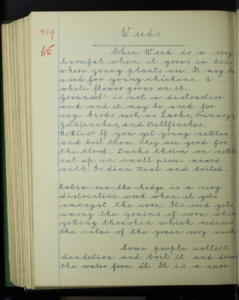 459
65
Weeds
Chic Weed is a very
harmful when it grows in beds
where young plants are. It may be
used for young chickens. A
white flower grows on it.
Groundsel is not a destructive
weed and it may be used for
cage birds such as Larks, Canarys,
Goldfinches, and Bullfinches.
Nettles: If you get young nettles
and boil them they are good for
the blood. Ducks thrive on nettles
cut up in small pieces mixed
with Indian Meal and boiled.
Robin-run-the-hedge is a very
destructive weed when it gets
amongst the corn. Its seed gets
among the grains of corn when
getting thrashed which reduces
the value of the grain very much
Some people collect
dandelion and boil it and drink
the water from it. It is a cure